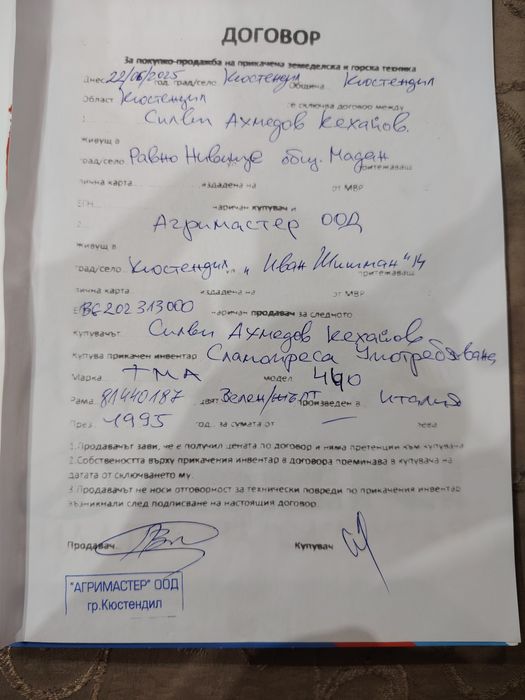 ДОГОВОР
За покупко-продажба на прикачена земеделска и горска техника
Днес 22/06/2025 год. град/село Кюстендил Община Кюстендил
Област Кюстендил се сключва договор между
1. Силви Ахмедов Кехайов.
живущ в
град/село Равно Нивище общ. Мадан притежаващ
лична карта издадена на от МВР
ЕГН наричан купувач и
2. Агримастер ООД
живущ в
град/село Кюстендил „Иван Шишман" 14 притежаващ
лична карта издадена на от МВР
BG202313000 наричан продавач за следното
Купувачът Силви Ахмедов Кехайов
купува прикачен инвентар Сламопреса Употребявана
Марка модел
Рама 81440187 цвят Зелен/жълт произведен в Италия
През 1995 год. за сумата от — лева
1.Продавачът зави, че е получил цената по договор и нима претенции към купувача
2.Собствеността върху прикачения инвентар в договора преминава в купувача на
датата от сключването му.
3.Продавачът не носи отговорност за технически повреди по прикачения инвентар
възникнали след подписване на настоящия договор.
Продавач Купувач
"АГРИМАСТЕР" ООД
гр.Кюстендил